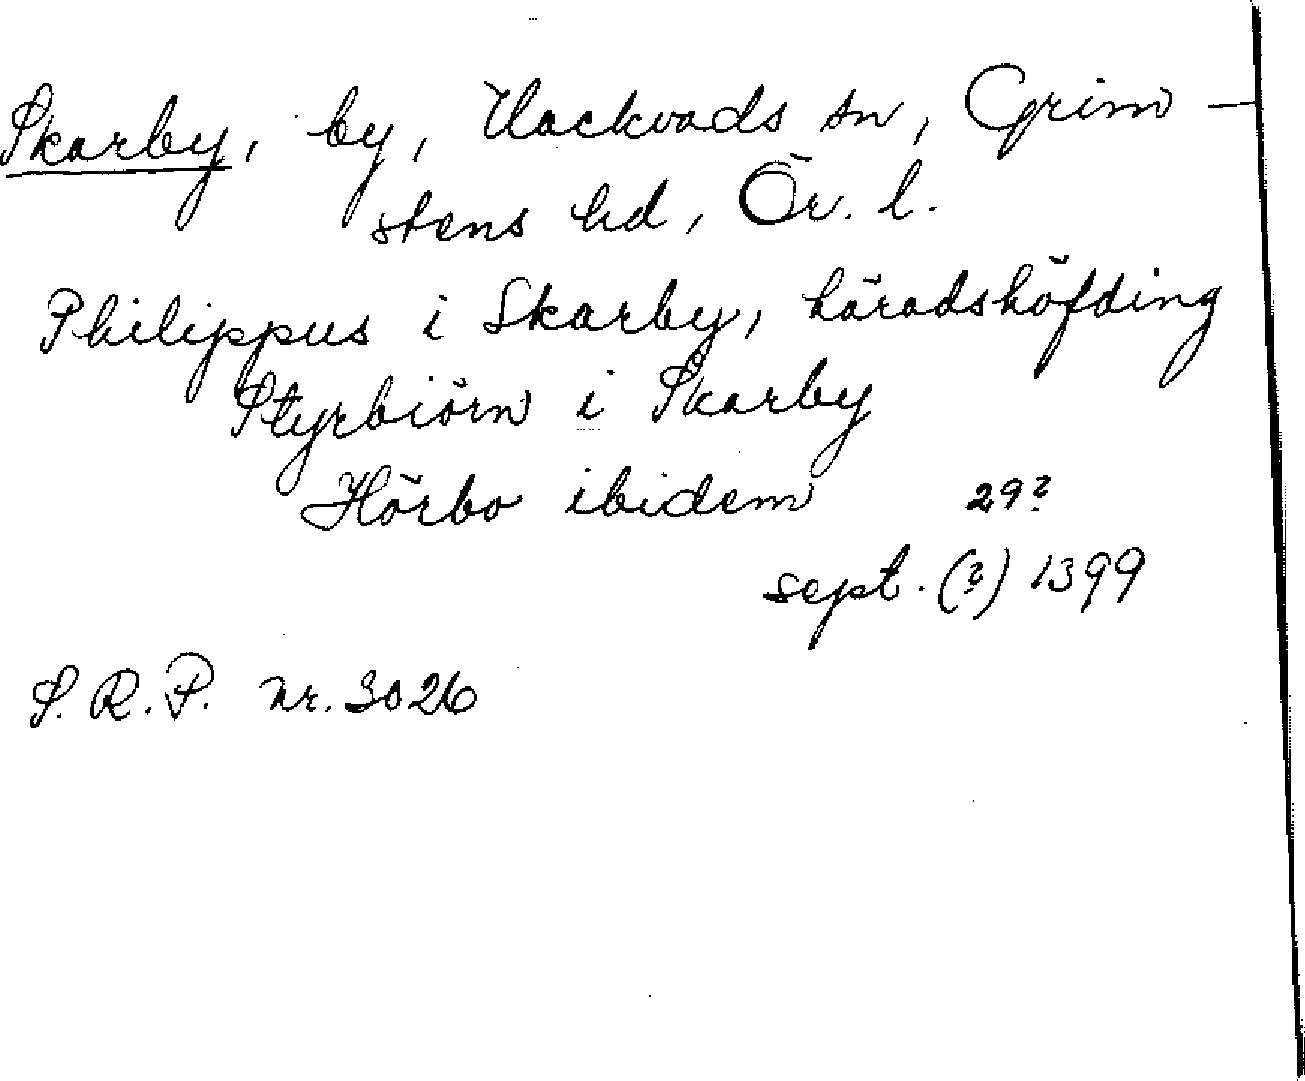 Skarby, by, Hackvads sn, Grim-
stens hd, Ör. l.
Philippus i Skarby, häradshöfding
Styrbiörn i Skarby
Hörbo ibidem 29?
sept. (?) 1399
S. R. P. nr. 3026